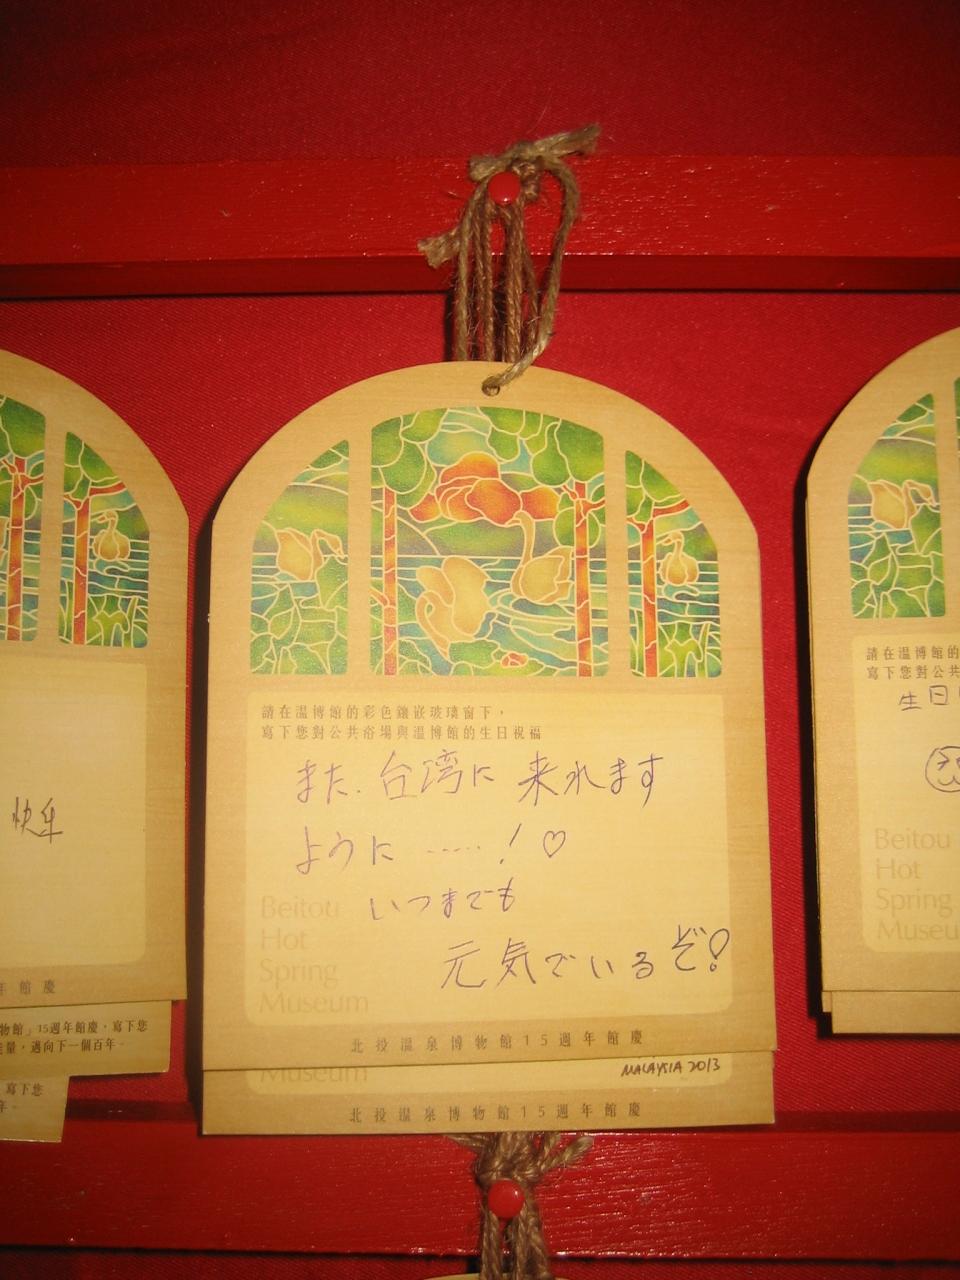 請在溫博館的彩色鑲嵌玻璃窗下，
寫下您對公共浴場與溫博館的生日祝福
また、台湾に来れます
ように……！♡
いつまでも
元気でいるぞ!
Beitou
Hot
Spring
Museum
北投溫泉博物館15週年館慶
Museum
MALAYSIA 2013
北投溫泉博物館15週年館慶
快年
年館慶
物館」15週年館慶，寫下您
能量，邁向下一個百年。
寫下您
年。
請在溫博館的
寫下您對公共
生日
Beitou
Hot
Spring
Museum